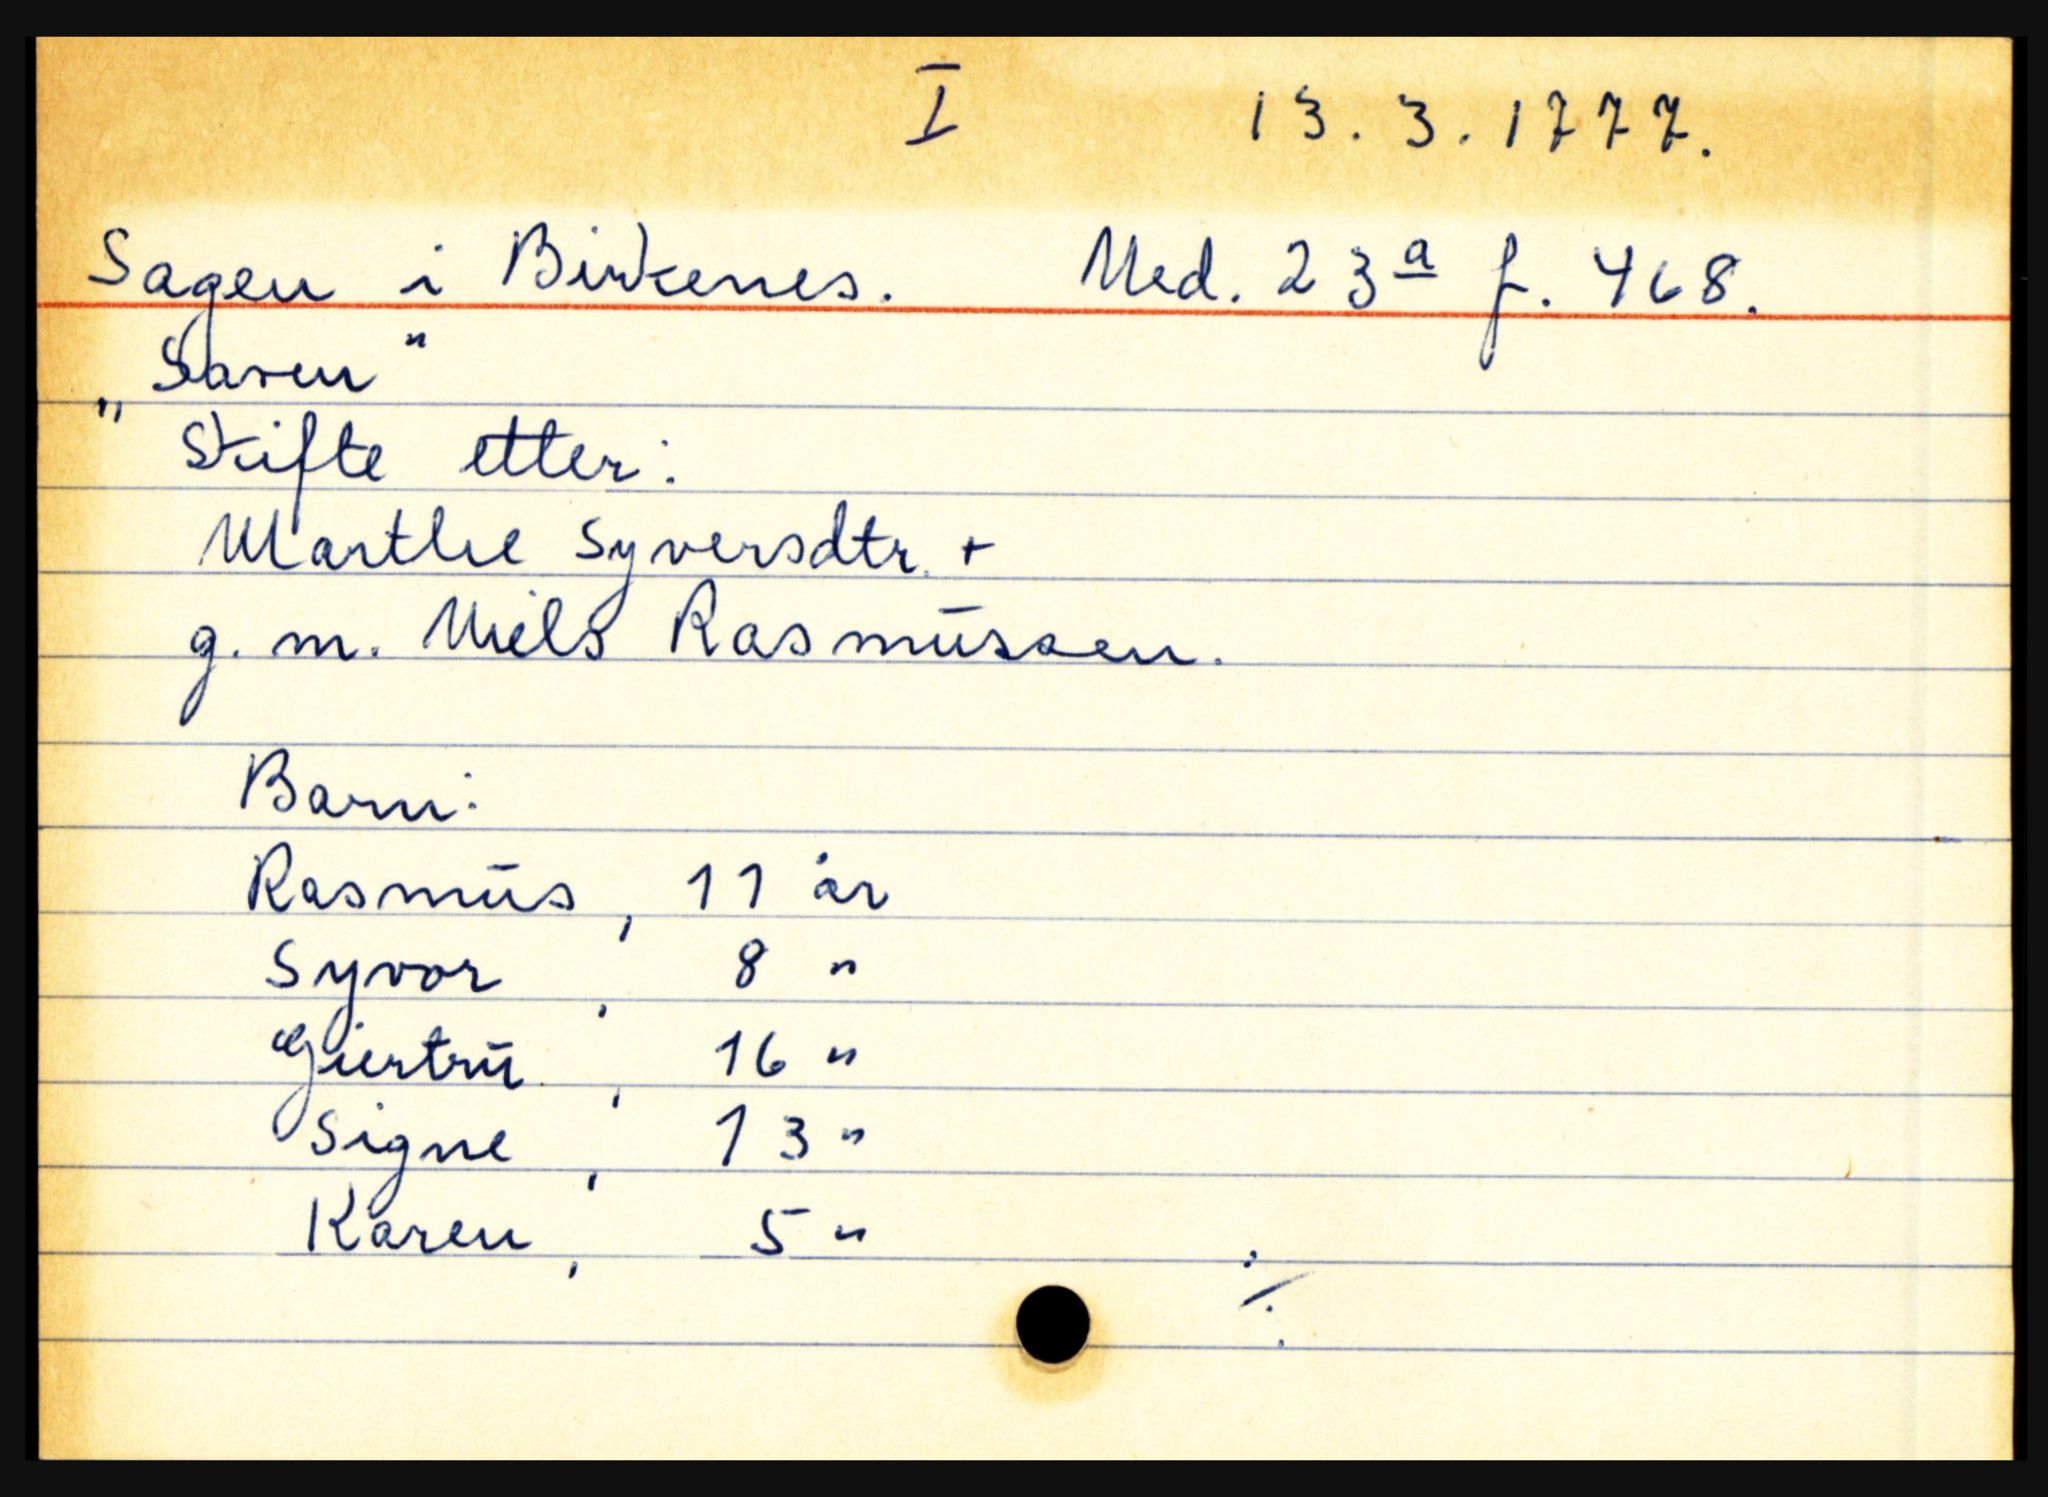 I 13.3.1777.
Sagen i Birkenes. Ned. 23a f. 468.
„Saven"
Skifte etter:
Marthe Syversdtr. +
g. m. Niels Rasmūssen.
Barn:
Rasmūs, 11 år
Syvor, 8 "
Giertrū, 16 "
Signe, 13 "
Karen, 5 "
./.